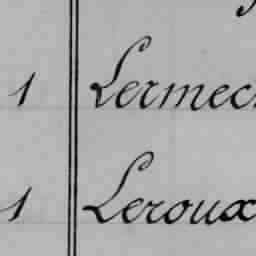 1 Lermec
1 Leroux